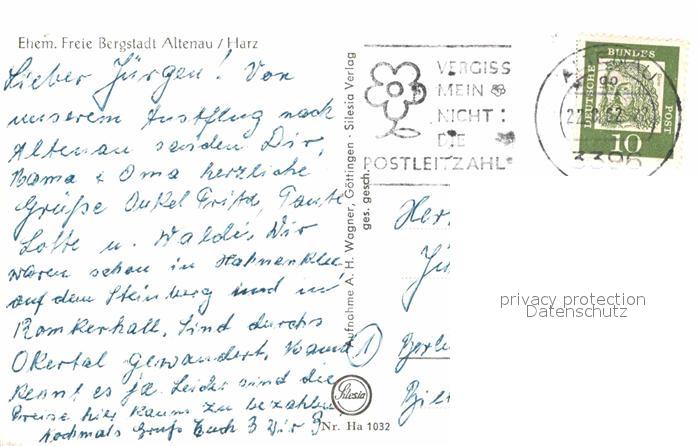 Ehem. Freie Bergstadt Altenau / Harz
Lieber Jürgen! Von
unserem Ausflug nach
Altenau senden Dir,
Mama & Oma herzliche
Grüße Onkel Fritz, Tante
Lotte u. Waldi. Wir
waren schon in Hahnenklee
auf dem Steinberg und in
Romkerhall. Sind durchs
Okertal gewandert,
kennt es ja. Leider sind die
Preise hier kaum zu bezahlen
Nochmals Gruß Euch 3 Wir 3
Aufnahme A. H. Wagner, Göttingen · Silesia Verlag
ges. gesch.
Silesia
Nr. Ha 1032
VERGISS
MEIN
NICHT:
DIE
POSTLEITZAHL
ALTENAU
22. 62
3396
DEUTSCHE BUNDES POST
10
Her
Jü
1 Berl
privacy protection
Datenschutz